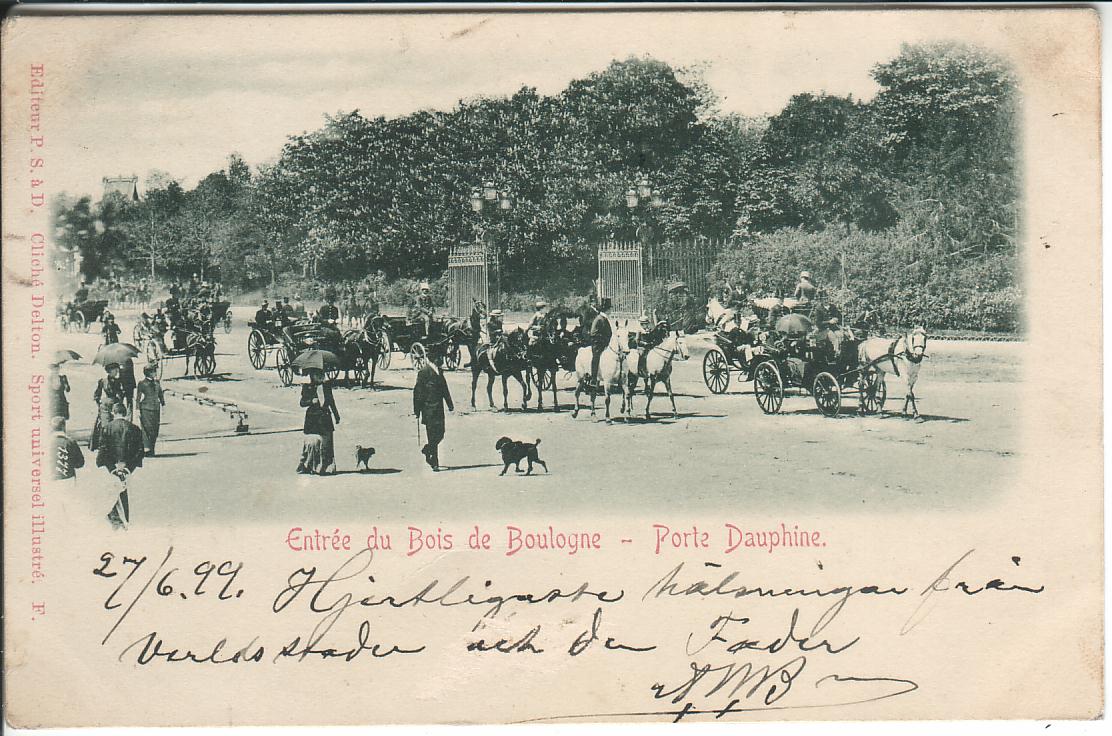 Editeur P. S. à D. Cliché Delton. Sport universel illustré. F.
1377
Entrée du Bois de Boulogne - Porte Dauphine.
27/6.99. Hjertligaste hälsningar från
verldsstaden och den Fader